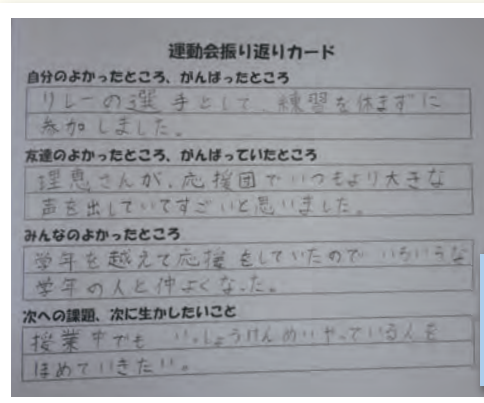 運動会振り返りカード
自分のよかったところ、がんばったところ
リレーの選手として、練習を休まずに
参加しました。
友達のよかったところ、がんばっていたところ
理恵さんが、応援団でいつもより大きな
声を出していてすごいと思いました。
みんなのよかったところ
学年を越えて応援をしていたのでいろいろな
学年の人と仲よくなった。
次への課題、次に生かしたいこと
授業中でもいっしょうけんめいやっている人を
ほめていきたい。